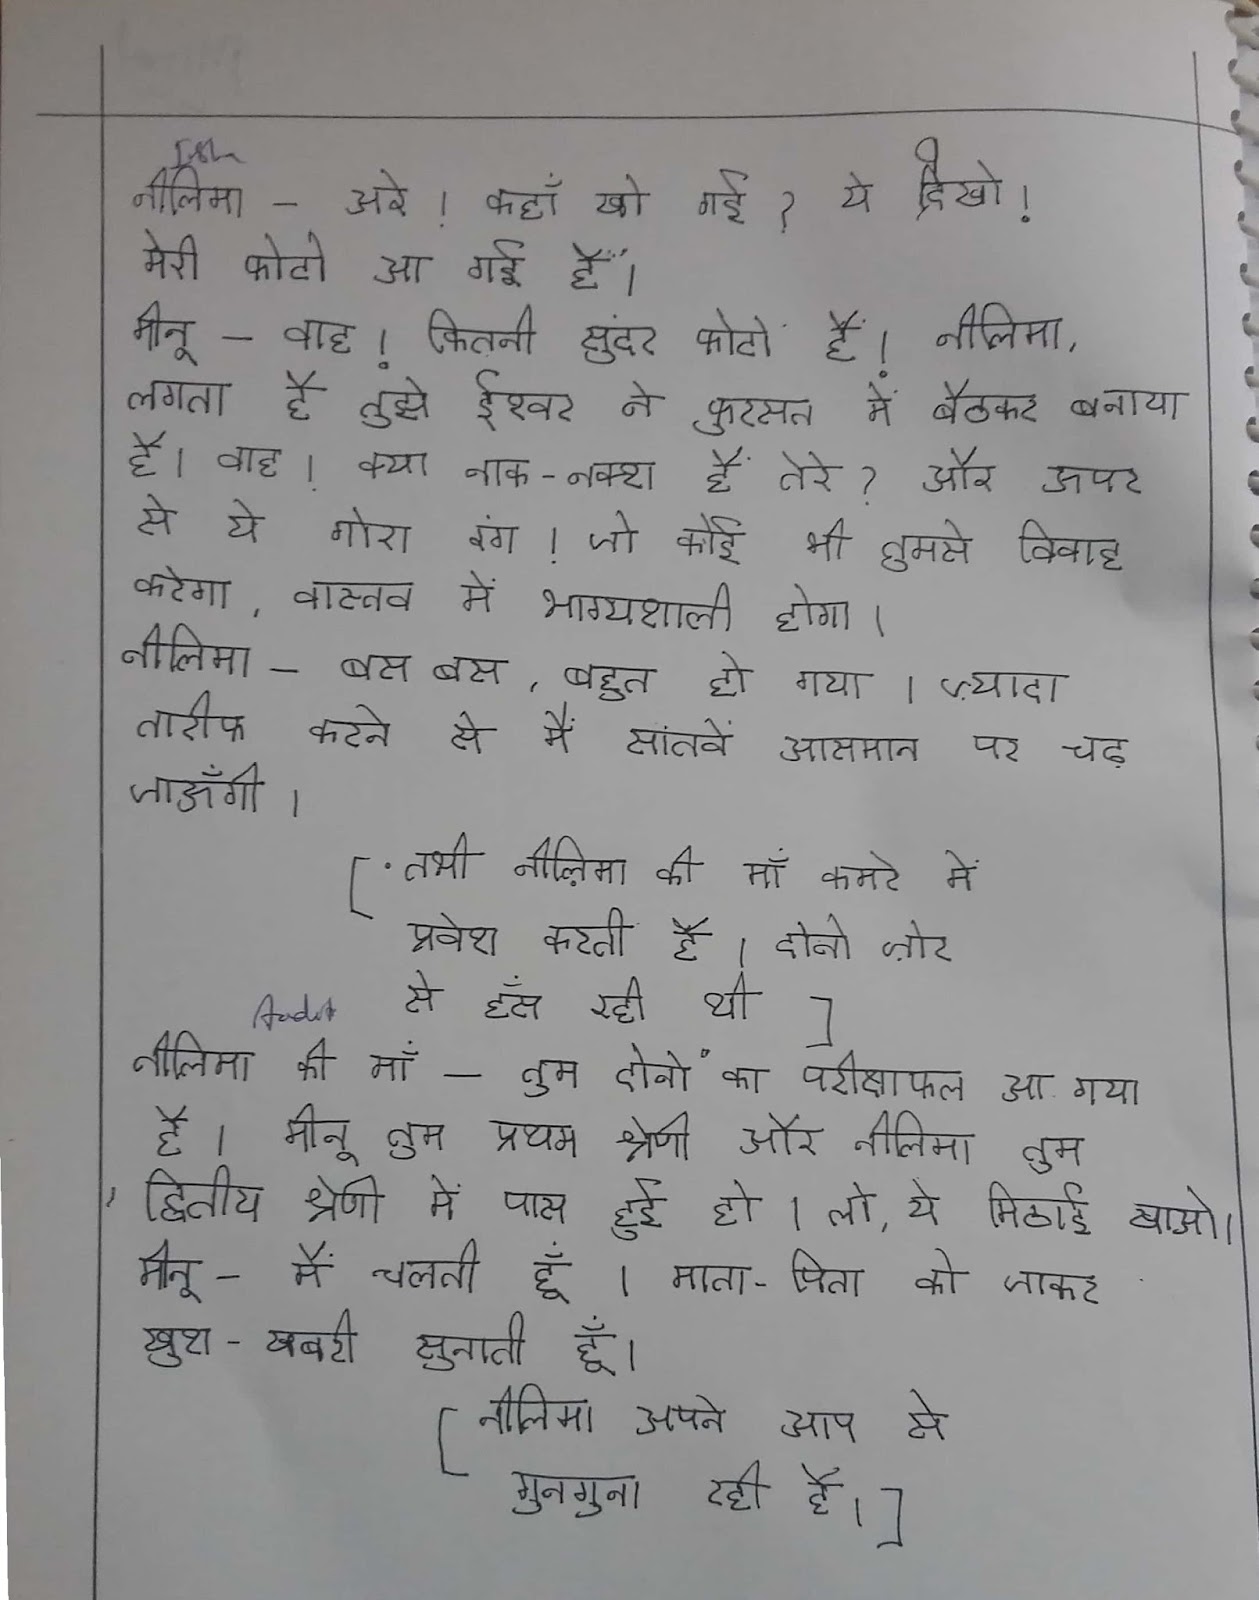 नीलिमा - अरे ! कहाँ खो गई ? ये देखो !
मेरी फोटो आ गई हैं।
मीनू - वाह ! कितनी सुंदर फोटो हैं ! नीलिमा,
लगता है तुझे ईश्वर ने फुरसत में बैठकर बनाया
है। वाह ! क्या नाक-नक्श हैं तेरे ? और ऊपर
से ये गोरा रंग ! जो कोई भी तुमसे विवाह
करेगा, वास्तव में भाग्यशाली होगा।
नीलिमा - बस बस, बहुत हो गया। ज़्यादा
तारीफ करने से मैं सांतवें आसमान पर चढ़
जाऊँगी।
[ तभी नीलिमा की माँ कमरे में
प्रवेश करती है। दोनो ज़ोर
से हँस रही थी ]
नीलिमा की माँ - तुम दोनों का परीक्षाफल आ गया
है। मीनू तुम प्रथम श्रेणी और नीलिमा तुम
द्वितीय श्रेणी में पास हुई हो। लो, ये मिठाई खाओ।
मीनू - मैं चलती हूँ। माता-पिता को जाकर
खुश-खबरी सुनाती हूँ।
[ नीलिमा अपने आप से
गुनगुना रही है। ]